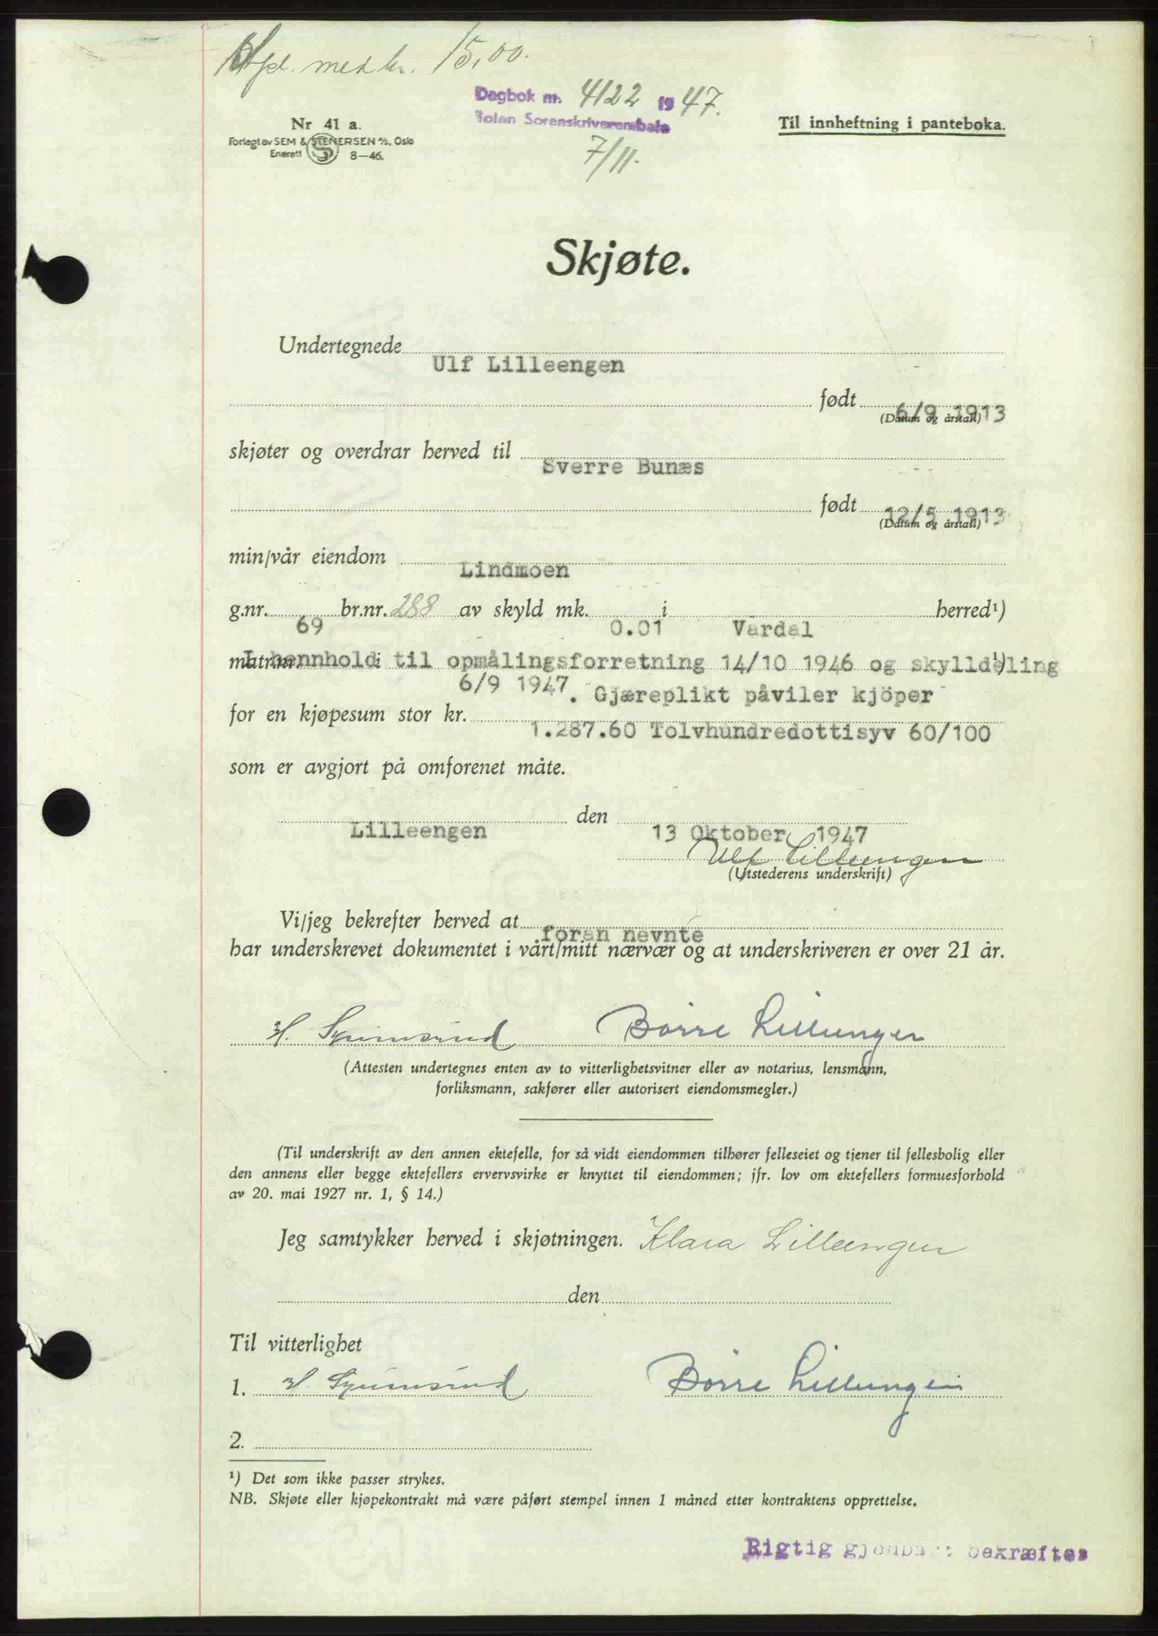 Stpl. med kr. 15,00.
Dagbok nr. 4122 1947.
Toten Sorenskriverembete
7/11.
Til innheftning i panteboka.
Nr 41 a.
Forlagt av SEM & STENERSEN A/S, Oslo
Enerett 8—46.
Skjøte.
Undertegnede Ulf Lilleengen
født 6/9 1913
(Datum og årstall)
skjøter og overdrar herved til Sverre Bunæs
født 12/5 1913
(Datum og årstall)
min/vår eiendom Lindmoen
g.nr. 69 br.nr. 288 av skyld mk. 0.01 i Vardal herred¹)
matr.nr. I hennhold til opmålingsforretning 14/10 1946 og skylldeling ¹)
6/9 1947. Gjæreplikt påviler kjöper
for en kjøpesum stor kr. 1.287.60 Tolvhundredottisyv 60/100
som er avgjort på omforenet måte.
Lilleengen den 13 Oktober 1947
Ulf Lilleengen
(Utstederens underskrift)
Vi/jeg bekrefter herved at foran nevnte
har underskrevet dokumentet i vårt/mitt nærvær og at underskriveren er over 21 år.
H. Børre Lilleengen
(Attesten undertegnes enten av to vitterlighetsvitner eller av notarius, lensmann,
forliksmann, sakfører eller autorisert eiendomsmegler.)
(Til underskrift av den annen ektefelle, for så vidt eiendommen tilhører felleseiet og tjener til fellesbolig eller
den annens eller begge ektefellers ervervsvirke er knyttet til eiendommen; jfr. lov om ektefellers formuesforhold
av 20. mai 1927 nr. 1, § 14.)
Jeg samtykker herved i skjøtningen. Klara Lilleengen
den
Til vitterlighet
1. H. Børre Lilleengen
2.
¹) Det som ikke passer strykes.
NB. Skjøte eller kjøpekontrakt må være påført stempel innen 1 måned etter kontraktens opprettelse.
Rigtig gjenpart bekræftes